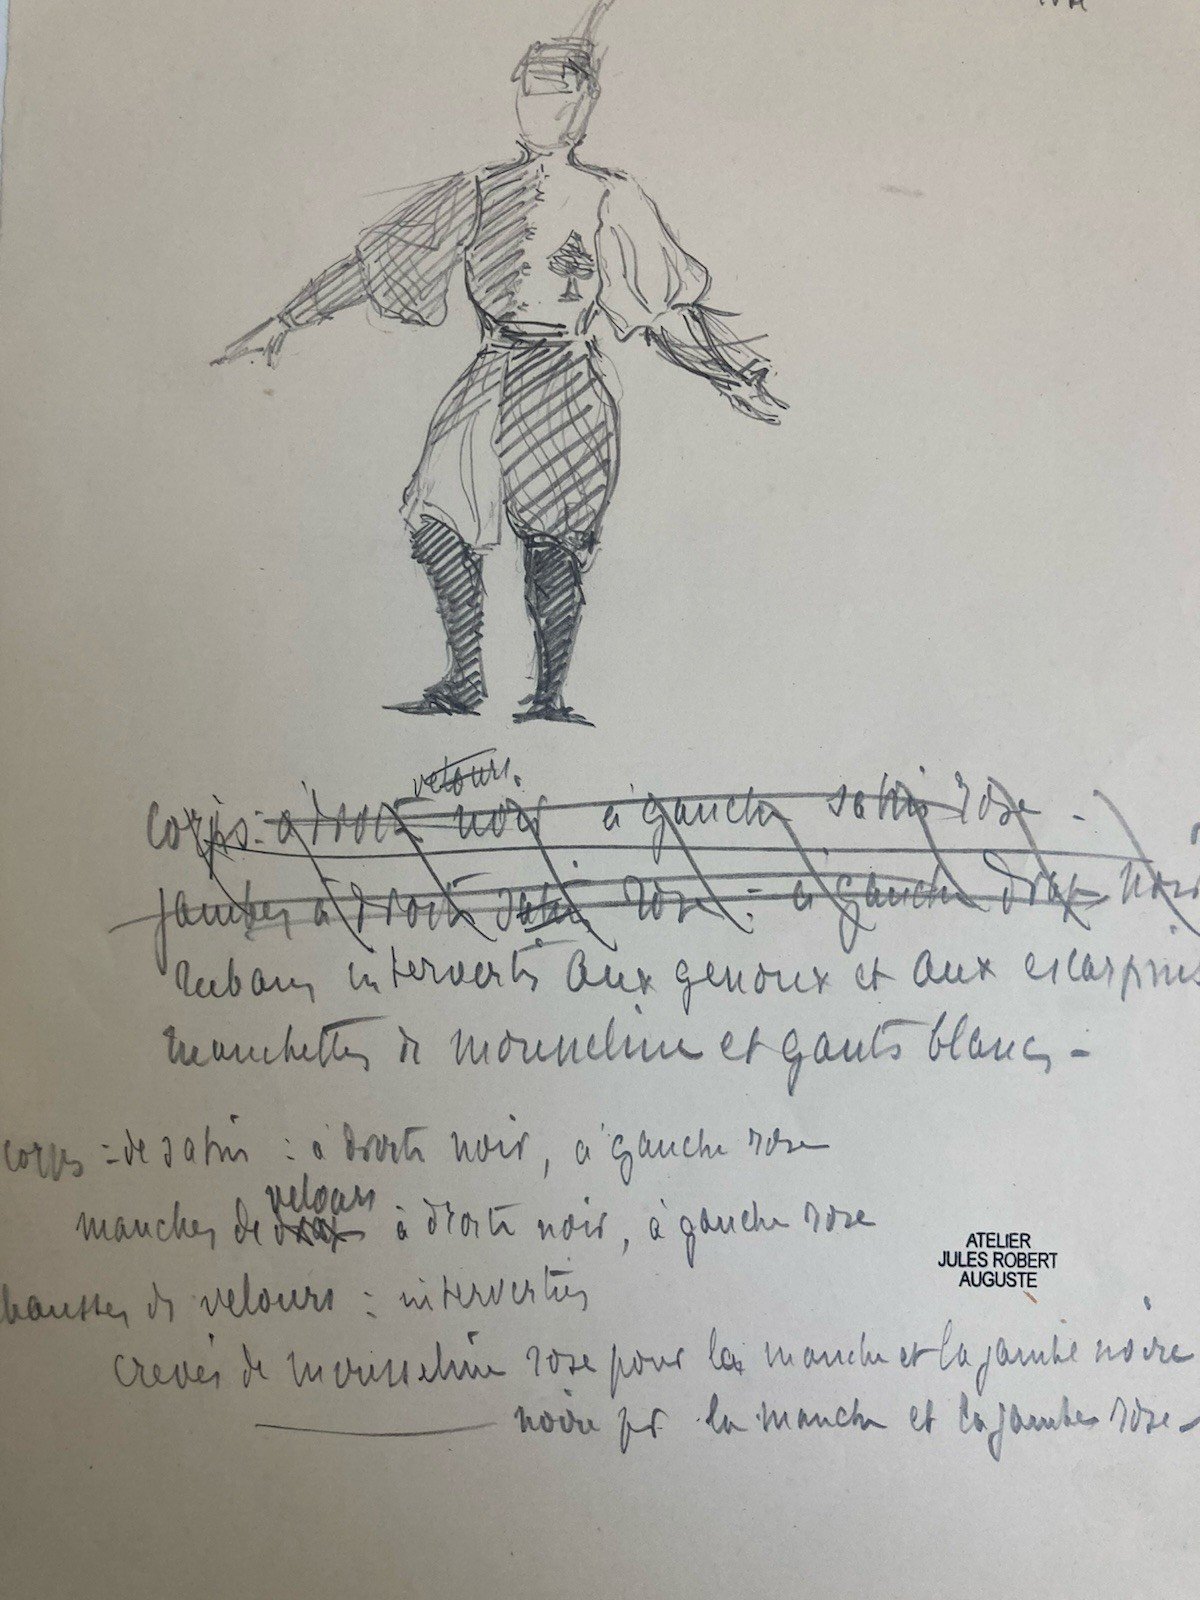 velours
corps : à droite noir à gauche satin rose -
jambes à droite satin rose : à gauche drap noir
rubans intervertis aux genoux et aux escarpins
manchettes de mousseline et gants blancs -
corps = de satin : à droite noir, à gauche rose
velours
manches de drap à droite noir, à gauche rose
chausses de velours : interverties
ATELIER
JULES ROBERT
AUGUSTE
crevés de mousseline rose pour la manche et la jambe noire
noire pr la manche et la jambe rose -